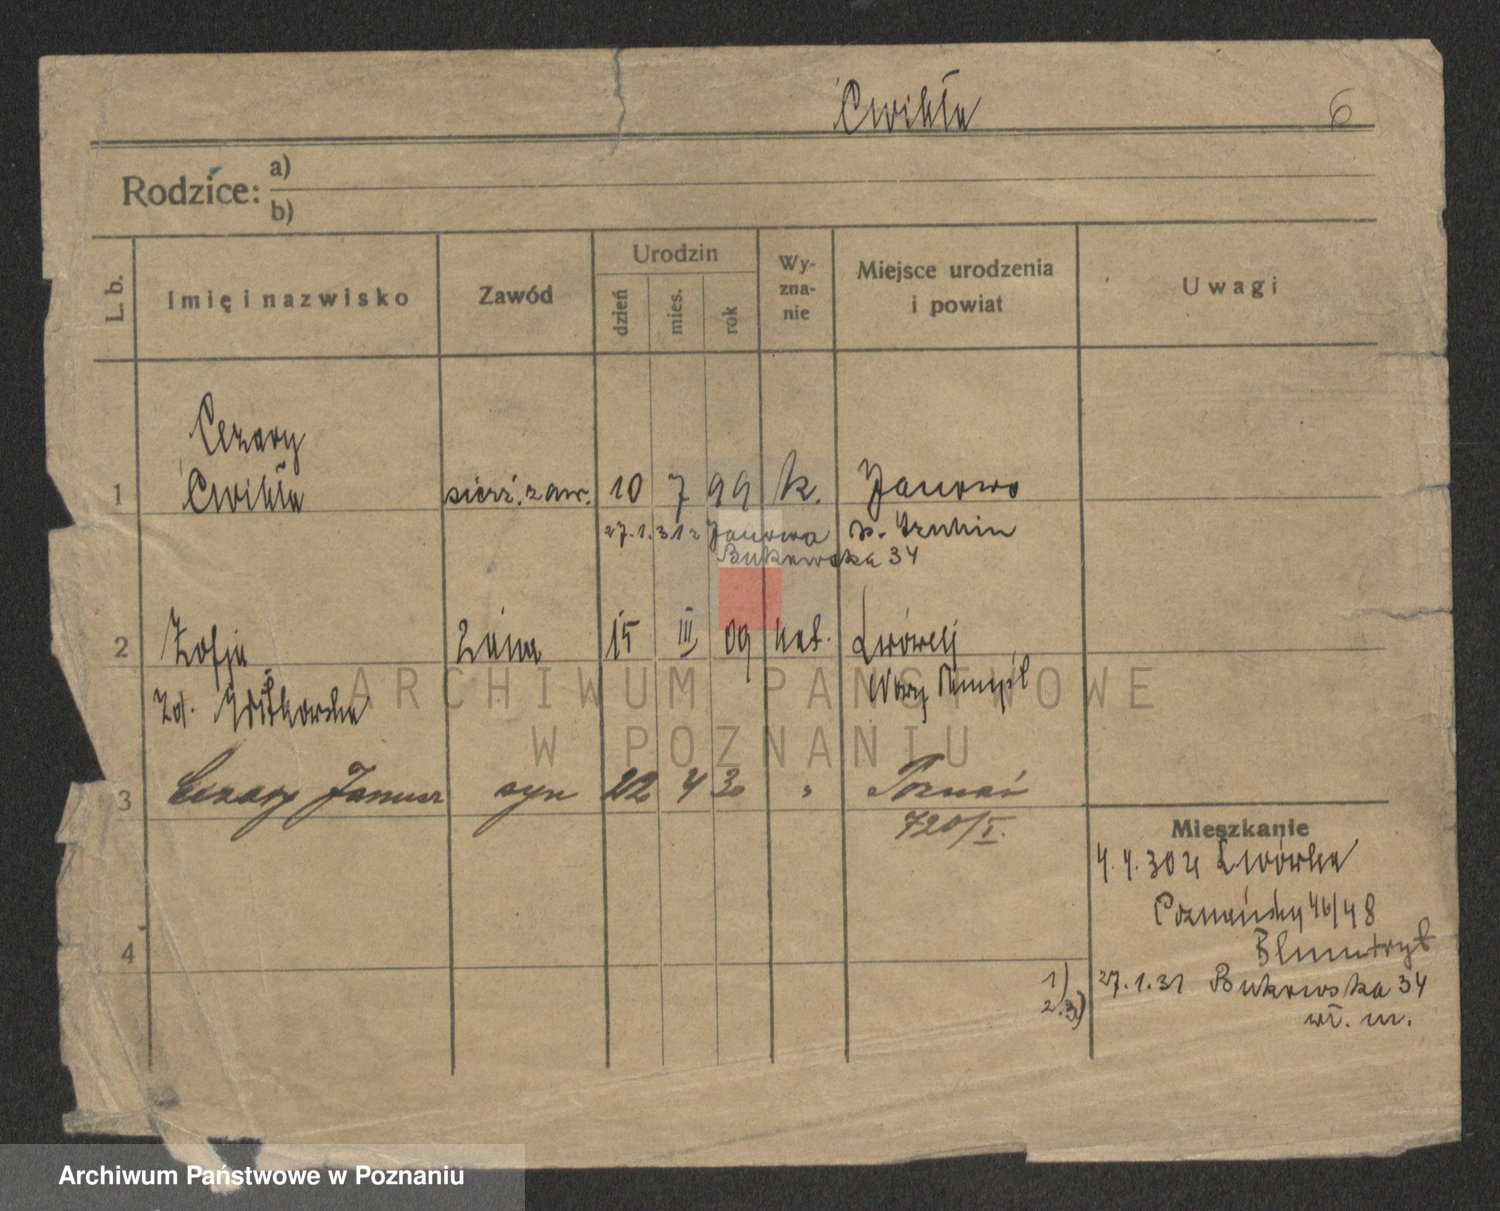 Ćwikła
6
Rodzice: a)
b)
L. b.
Imię i nazwisko
Zawód
Urodzin
dzień
mies.
rok
Wy-
zna-
nie
Miejsce urodzenia
i powiat
Uwagi
Cezary
1 Ćwikła sierż. zaw. 10 7 99 k. Janowo
27.1.31 z Janowa p. Szubin
Bukowska 34
2 Zofja żona 15 III 09 kat. Lwówek
zd. Nowy
3 Cezary Janusz syn 22 4 30 " Poznań
720/I.
Mieszkanie
4.4.30 z Lwówka
Poznańska 46/48
4
1) 27.1.31 Bukowska 34
2.3) wł. m.
ARCHIWUM PAŃSTWOWE
W POZNANIU
Archiwum Państwowe w Poznaniu